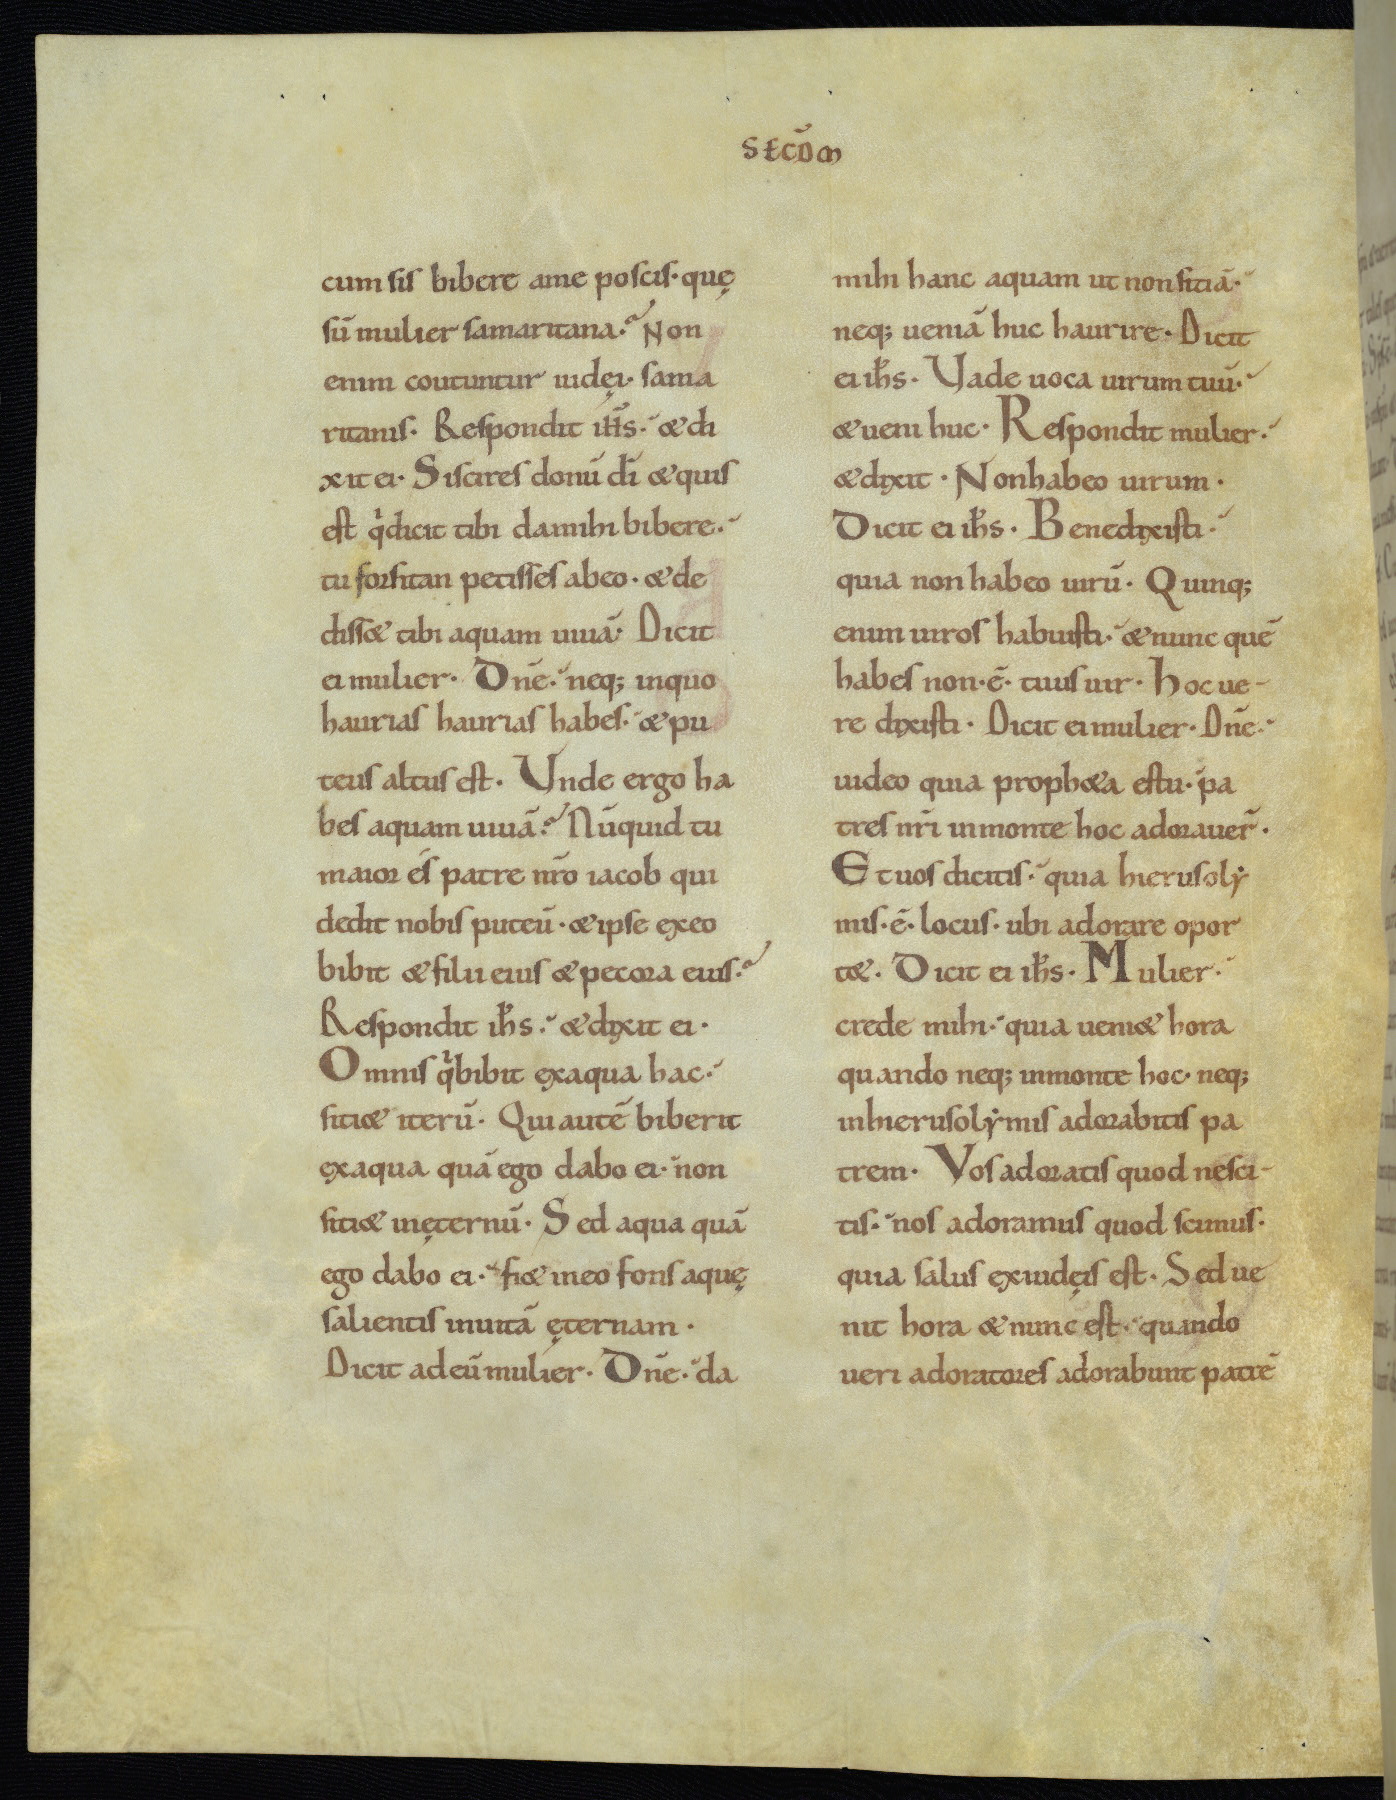 SECD̄M
cum sis bibere a me poscis· quę
sū mulier samaritana? Non
enim coutuntur iudęi· sama
ritanis· Respondit ih̄s· & di
xit ei· Si scires donū dī & quis
est q̍ dicit tibi da mihi bibere·
tu forsitan petisses ab eo· & de
diss& tibi aquam uiuā· Dicit
ei mulier· Dn̄e· neq; in quo
haurias haurias habes· & pu
teus altus est· Unde ergo ha
bes aquam uiuā? Nūquid tu
maior es patre nr̄o iacob qui
dedit nobis puteū· & ipse ex eo
bibit & filii eius & pecora eius?
Respondit ih̄s· & dixit ei·
Omnis q̍ bibit ex aqua hac·
siti& iterū· Qui autē biberit
ex aqua quā ego dabo ei· non
siti& in ęternū· Sed aqua quā
ego dabo ei· fi& in eo fons aquę
salientis in uitā ęternam·
Dicit ad eū mulier· Dn̄e· da
mihi hanc aquam ut non sitiā·
neq; ueniā huc haurire· Dicit
ei ih̄s· Uade uoca uirum tuū·
& ueni huc· Respondit mulier·
& dixit· Non habeo uirum·
Dicit ei ih̄s· Bene dixisti·
quia non habeo uirū· Quinq;
enim uiros habuisti· & nunc quē
habes non·ē· tuus uir· Hoc ue-
re dixisti· Dicit ei mulier· Dn̄e·
uideo quia proph&a es tu· pa
tres nr̄i in monte hoc adorauer̄·
Et uos dicitis· quia hierusoly
mis·ē· locus· ubi adorare opor
t&· Dicit ei ih̄s· Mulier·
crede mihi· quia ueni& hora
quando neq; in monte hoc· neq;
in hierusolymis adorabitis pa
trem· Vos adoratis quod nesci-
tis· nos adoramus quod scimus·
quia salus ex iudęis est· Sed ue
nit hora & nunc est· quando
ueri adoratores adorabunt patrē